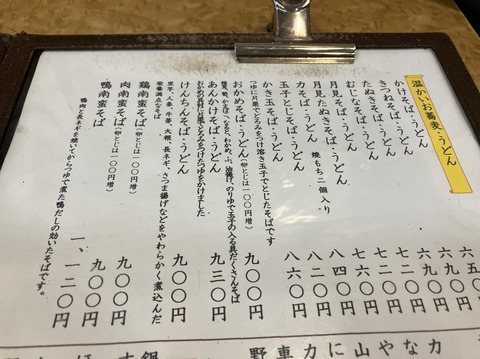 温かいお蕎麦・うどん
かけそば・うどん 六五〇円
きつねそば・うどん 六九〇円
たぬきそば・うどん 六九〇円
むじなそば・うどん 七二〇円
月見そば・うどん 七二〇円
月見たぬきそば・うどん 七六〇円
力そば・うどん 焼もち二個入り 八四〇円
玉子とじそば・うどん 八二〇円
かき玉そば・うどん 八六〇円
つゆに片栗でとろみをつけ溶き玉子でとじたそばです
おかめそば・うどん(卵とじは一〇〇円増) 九〇〇円
かまぼこ、なると、わかめ、ふ、油揚げ、のりゆで玉子の入る具だくさんそば
あんかけそば・うどん 九三〇円
おかめの具材に片栗でとろみをつけたつゆをかけました
けんちんそば・うどん 九〇〇円
里芋、人参、牛蒡、大根、長ネギ、さつま揚げなどをやわらかく煮込んだ
栄養満点なそば
鶏南蛮そば(卵とじは一〇〇円増) 九〇〇円
肉南蛮そば(卵とじは一〇〇円増) 九〇〇円
鴨南蛮そば 一、一二〇円
鴨肉と長ネギを焼いてからつゆで煮た鴨だしの効いたそばです。